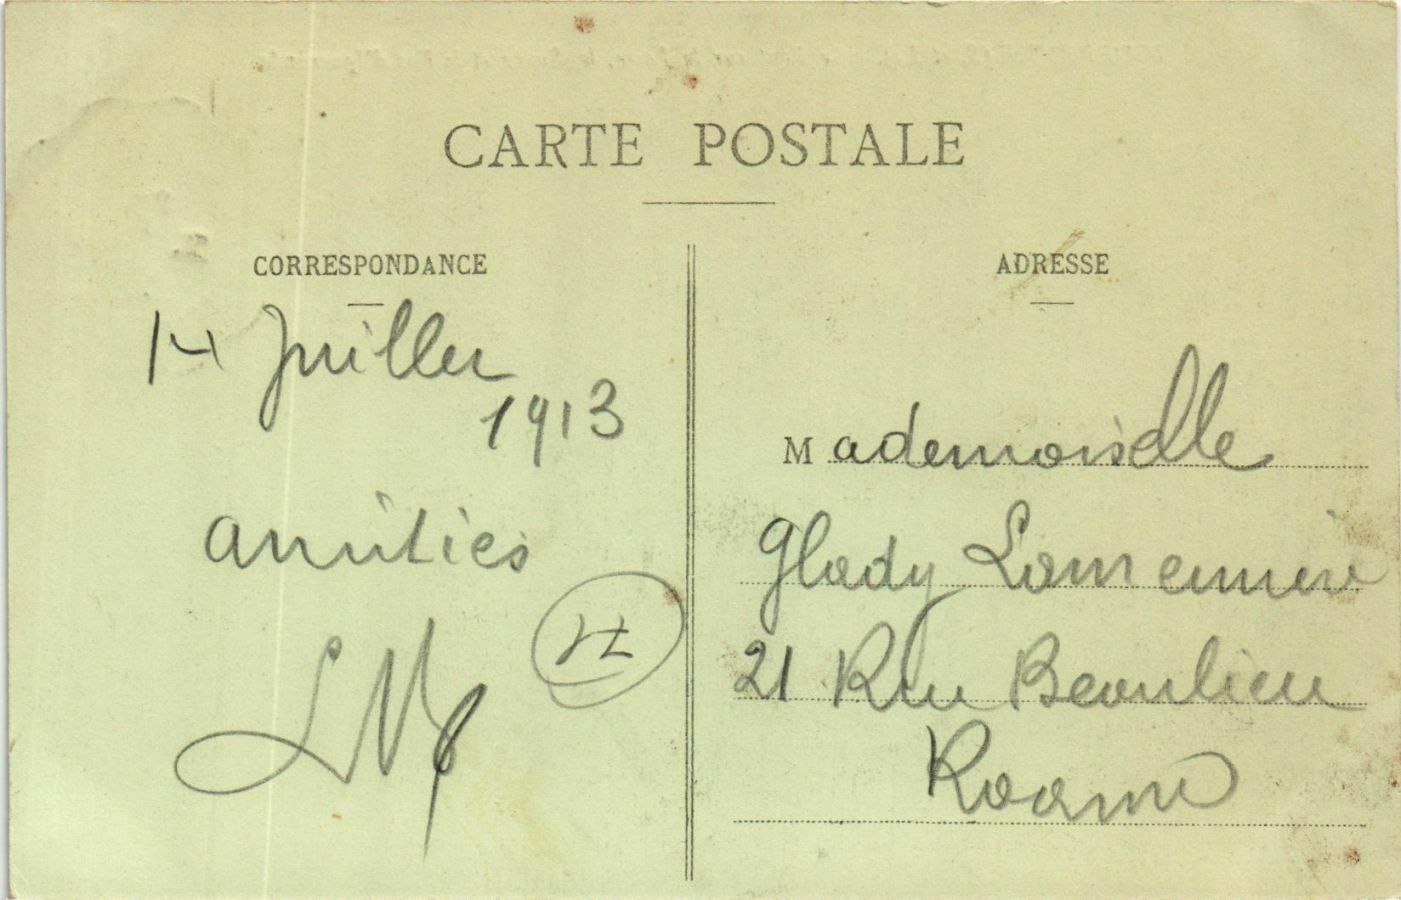 CARTE POSTALE
CORRESPONDANCE
14 Juillet
1913
amitiés
ADRESSE
Mademoiselle
Glady
21 Rue Beaulieu
Roanne